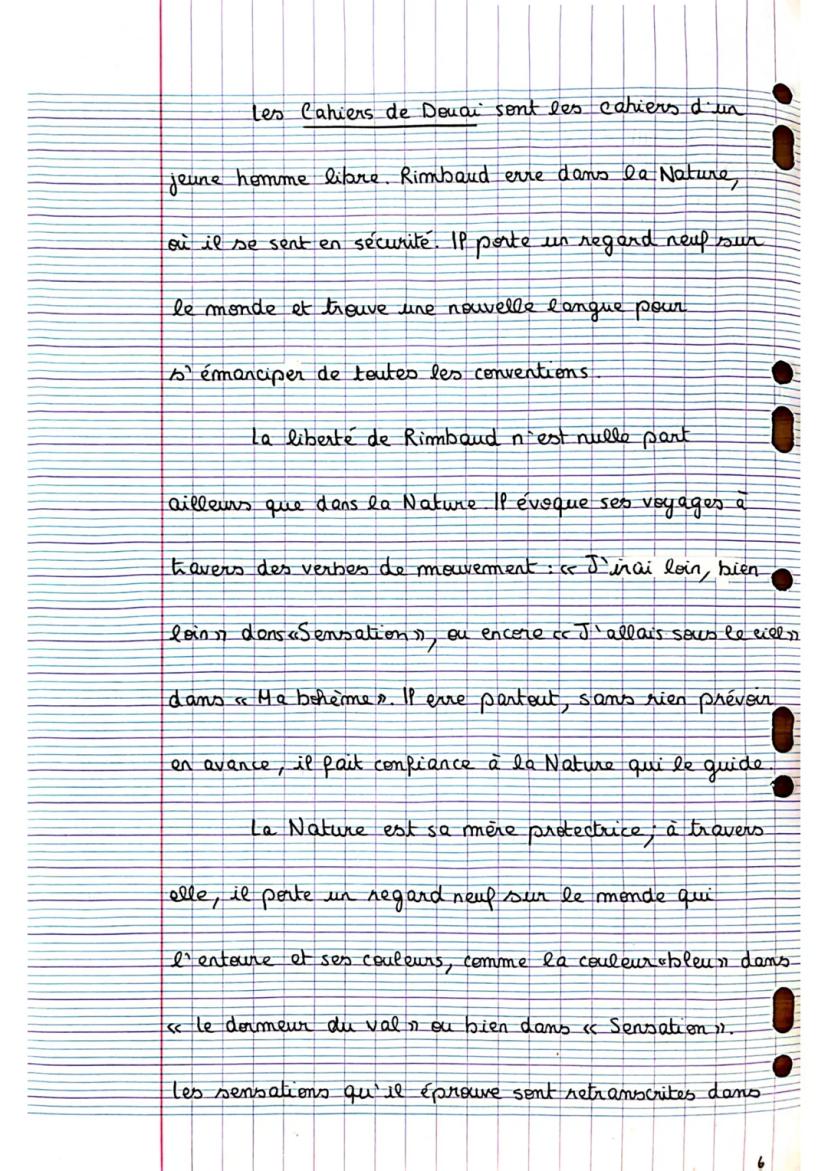 Les Cahiers de Douai sont les cahiers d'un
jeune homme libre. Rimbaud erre dans la Nature,
où il se sent en sécurité. Il porte un regard neuf sur
le monde et trouve une nouvelle langue pour
s'émanciper de toutes les conventions.
La liberté de Rimbaud n'est nulle part
ailleurs que dans la Nature. Il évoque ses voyages à
travers des verbes de mouvement : « J'irai loin, bien
loin » dans «Sensation», ou encore « J'allais sous le ciel»
dans « Ma bohème ». Il erre partout, sans rien prévoir
en avance, il fait confiance à la Nature qui le guide.
La Nature est sa mère protectrice ; à travers
elle, il porte un regard neuf sur le monde qui
l'entoure et ses couleurs, comme la couleur «bleu» dans
« Le dormeur du val » ou bien dans « Sensation ».
Les sensations qu'il éprouve sont retranscrites dans
6